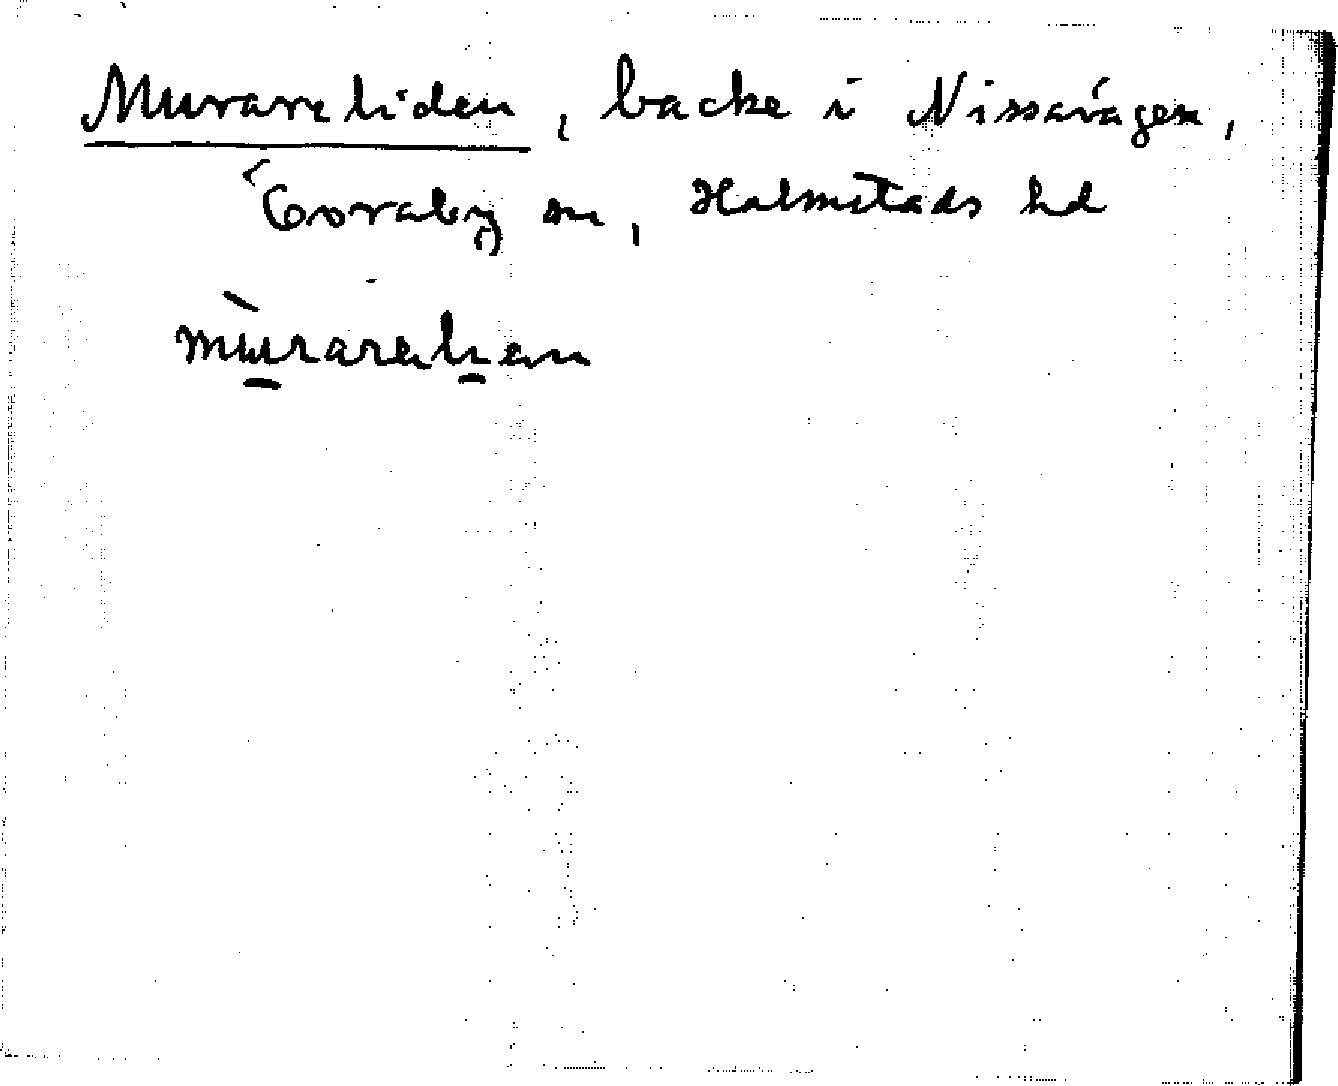 Murareliden, backe i Nissavägen,
Övraby sn, Halmstads hd
mùrarelien